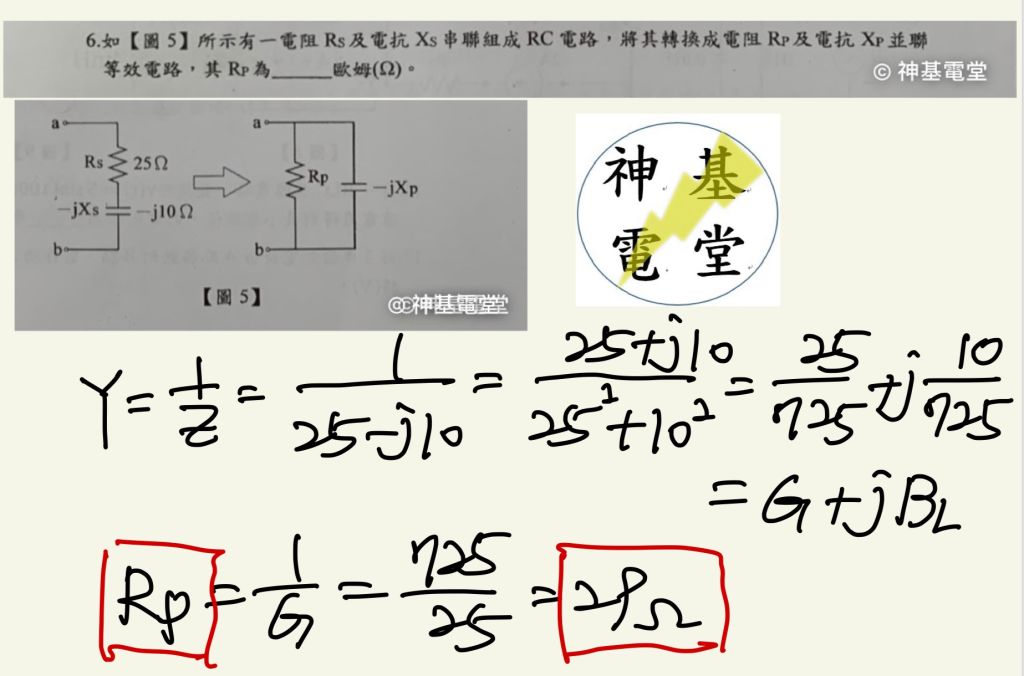 6.如【圖 5】所示有一電阻 Rs 及電抗 Xs 串聯組成 RC 電路，將其轉換成電阻 RP 及電抗 XP 並聯
等效電路，其 RP 為______歐姆(Ω)。
© 神基電堂
a
Rs 25Ω
-jXs -j10Ω
b
a
Rp -jXp
b
【圖 5】
神基電堂
神 基
電 堂
Y = 1/Z = 1/(25-j10) = (25+j10)/(25²+10²) = 25/725 + j 10/725
= G + jBL
Rp = 1/G = 725/25 = 29Ω